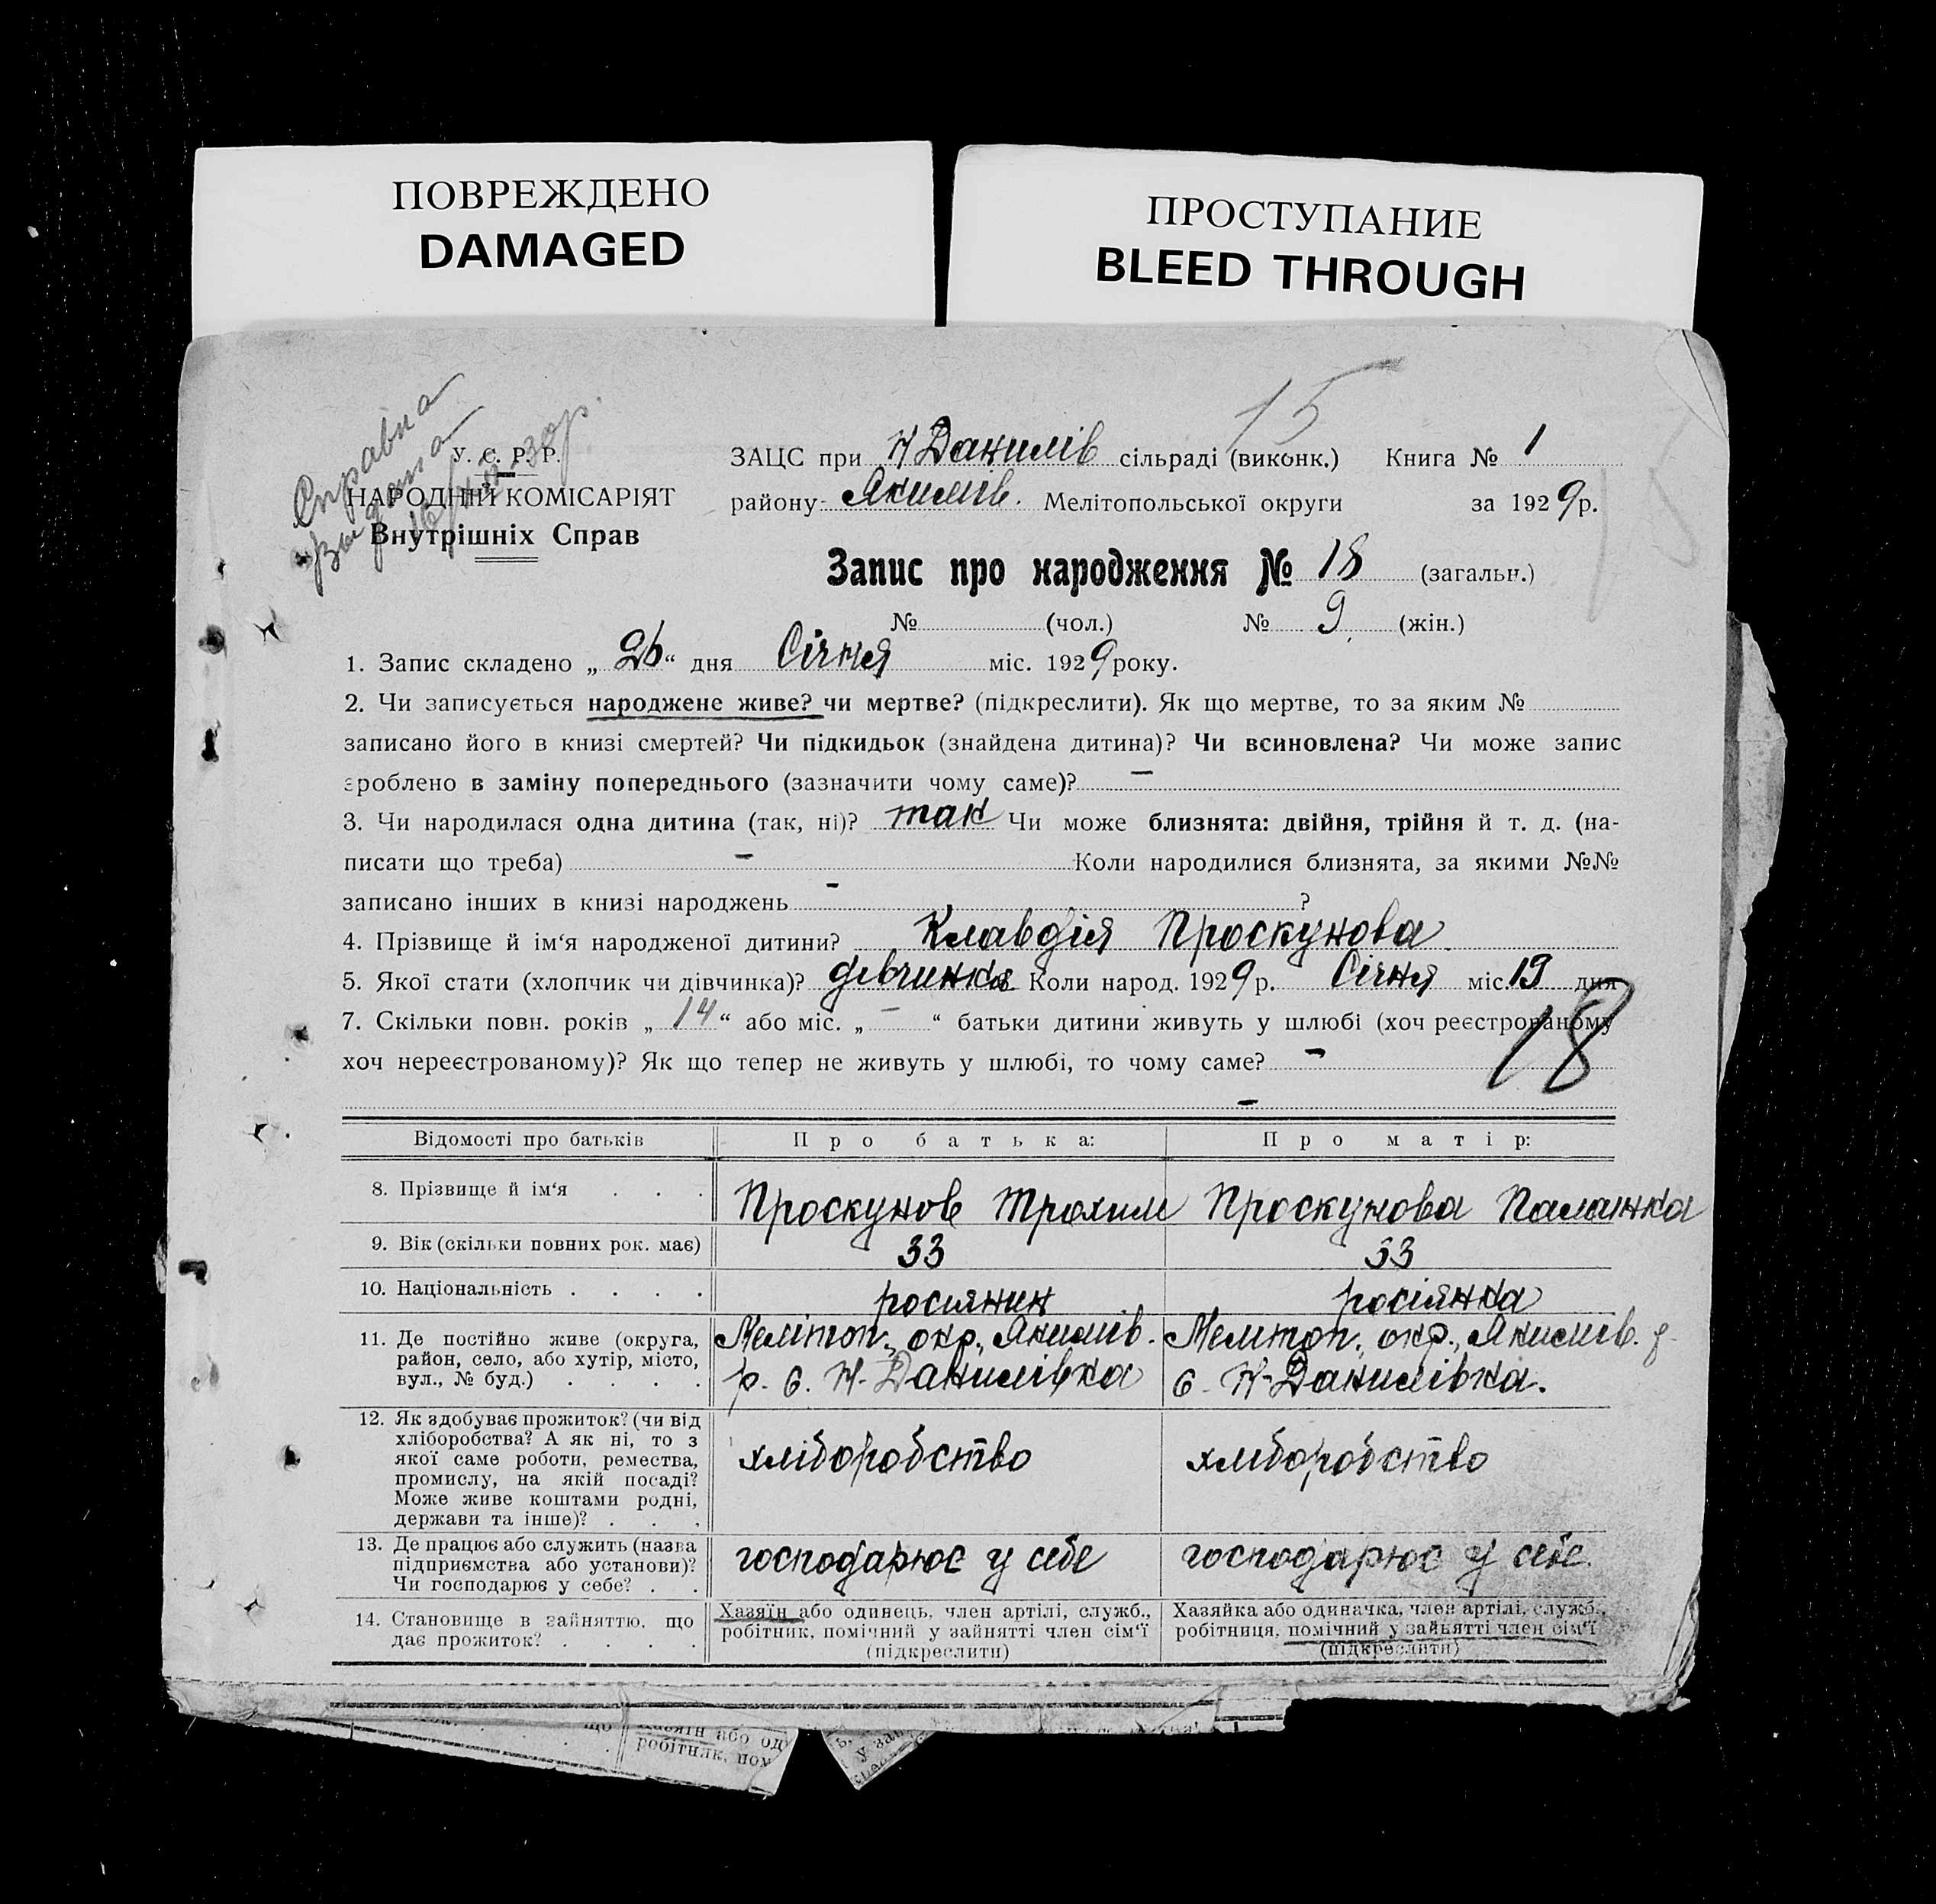 ПОВРЕЖДЕНО
DAMAGED
ПРОСТУПАНИЕ
BLEED THROUGH
15
Справка
У. С. Р. Р.
НАРОДНІЙ КОМІСАРІЯТ
Внутрішніх Справ
ЗАЦС при Н Данилів сільраді (виконк.) Книга № 1
району Якимів. Мелітопольської округи за 1929р.
Запис про народження № 18 (загальн.)
№ (чол.) № 9 (жін.)
1. Запис складено „26“ дня Січня міс. 1929 року.
2. Чи записується народжене живе? чи мертве? (підкреслити). Як що мертве, то за яким №
записано його в книзі смертей? Чи підкидьок (знайдена дитина)? Чи всиновлена? Чи може запис
зроблено в заміну попереднього (зазначити чому саме)? –
3. Чи народилася одна дитина (так, ні)? так Чи може близнята: двійня, трійня й т. д. (на-
писати що треба) – Коли народилися близнята, за якими №№
записано інших в книзі народжень – ?
4. Прізвище й ім‘я народженої дитини? Клавдія Проскунова
5. Якої стати (хлопчик чи дівчинка)? дівчинка Коли народ. 1929р. Січня міс. 19 дня
7. Скільки повн. років „14“ або міс. „–“ батьки дитини живуть у шлюбі (хоч реєстрованому
хоч нереєстрованому)? Як що тепер не живуть у шлюбі, то чому саме? –
18
–
Відомості про батьків Про батька: Про матір:
8. Прізвище й ім‘я . . . Проскунов Трохим Проскунова Паланка
9. Вік (скільки повних рок. має) 33 33
10. Національність . . . . росіянин росіянка
11. Де постійно живе (округа,
район, село, або хутір, місто,
вул., № буд.) . . . .
Мелітоп., окр., Якимів.
р. с. Н-Данилівка
Мелітоп., окр., Якимів. р.
с. Н-Данилівка.
12. Як здобуває прожиток? (чи від
хліборобства? А як ні, то з
якої саме роботи, ремества,
промислу, на якій посаді?
Може живе коштами родні,
держави та інше)? . . .
хліборобство
хліборобство
13. Де працює або служить (назва
підприємства або установи)?
Чи господарює у себе? . .
господарює у себе
господарює у себе.
14. Становище в зайняттю, що
дає прожиток? . . . .
Хазяїн або одинець, член артілі, служб.,
робітник, помічний у зайнятті член сім‘ї
(підкреслити)
Хазяйка або одиначка, член артілі, служб.,
робітниця, помічний у зайнятті член сім‘ї
(підкреслити)
що
або од
робітник, пом